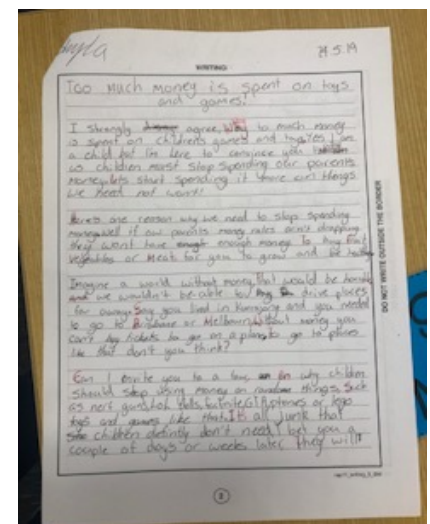 24.5.19
WRITING
Too much money is spent on toys
and games!
I strongly agree, Way to much money
is spent on children's games and toys. Yes I am
a child but I'm here to convince you
us children must stop spending our parents
money lets start spending it more on things
we need not want!
Here's one reason why we need to stop spending
money well if our parents money rates aren't dropping
they wont have enough money to buy fruit
vegetables or meat for you to grow and be
Imagine a world without money, that would be horrible
and we wouldn't be able to drive places
far away. Say you lived in and you needed
to go to Brisbane or Melbourn, without money you
can't buy tickets to go on a plane to go to places
like that don't you think?
Can I invite you to a law, on why children
should stop using money on random things, such
as nerf guns, lol dolls, fortnite, or lego
toys and games like that. It's all junk that
children defintly don't need I bet you a
couple of days or weeks later they will
DO NOT WRITE OUTSIDE THE BORDER
2